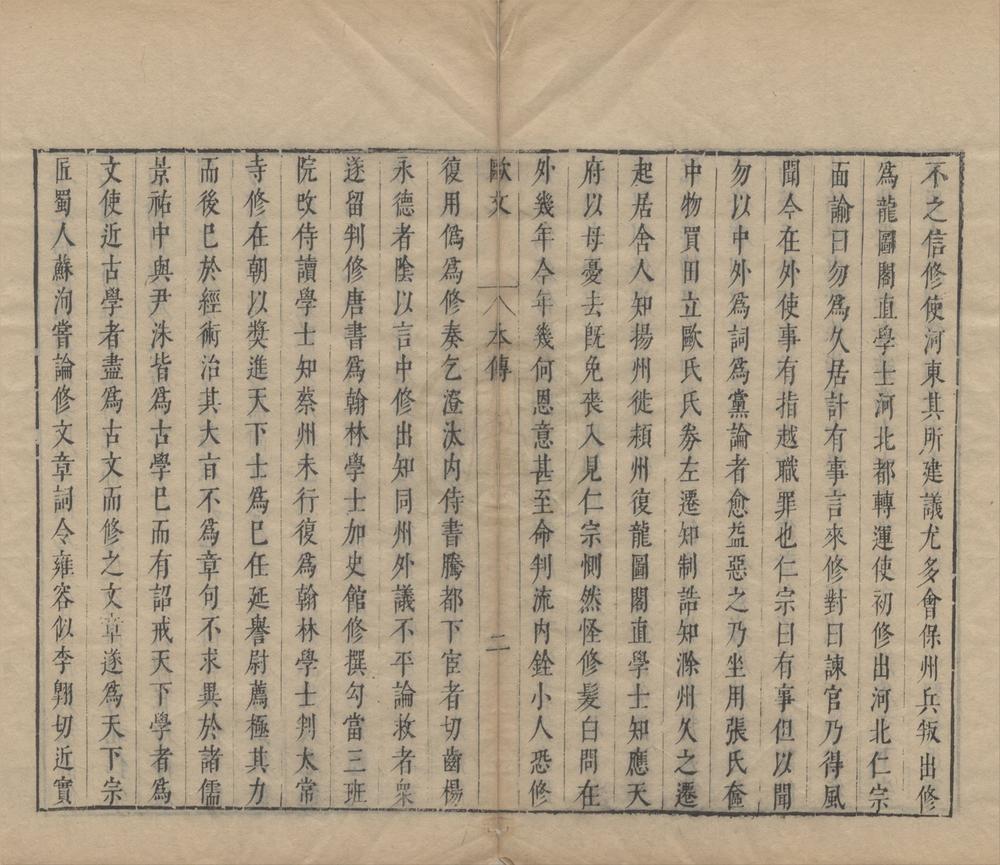 不之信修使河東其所建議尤多會保州兵叛出修
爲龍圖閣直學士河北都轉運使初修出河北仁宗
面諭曰勿爲久居計有事言來修對曰諫官乃得風
聞今在外使事有指越職罪也仁宗曰有事但以聞
勿以中外爲詞爲黨論者愈益惡之乃坐用張氏奩
中物買田立歐氏券左遷知制誥知滁州久之遷
起居舍人知揚州徙潁州復龍圖閣直學士知應天
府以母憂去旣免喪入見仁宗惻然怪修髮白問在
外幾年今年幾何恩意甚至命判流内銓小人恐修
歐文 八本傳 二
復用僞爲修奏乞澄汰内侍書騰都下宦者切齒楊
永德者陰以言中修出知同州外議不平論救者衆
遂留判修唐書爲翰林學士加史館修撰勾當三班
院改侍讀學士知蔡州未行復爲翰林學士判太常
寺修在朝以奬進天下士爲已任延譽尉薦極其力
而後已於經術治其大㫖不爲章句不求異於諸儒
景祐中與尹洙皆爲古學已而有詔戒天下學者爲
文使近古學者盡爲古文而修之文章遂爲天下宗
匠蜀人蘇洵嘗論修文章詞令雍容似李翱切近實